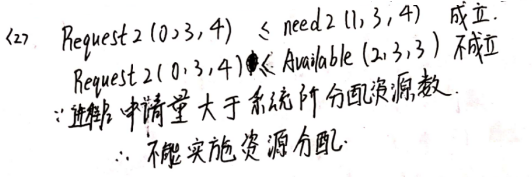 <2> Request2(0,3,4) ≤ need2(1,3,4) 成立.
Request2(0,3,4) ≤ Available(2,3,3) 不成立
∵进程2申请量大于系统所分配资源数.
∴ 不能实施资源分配.